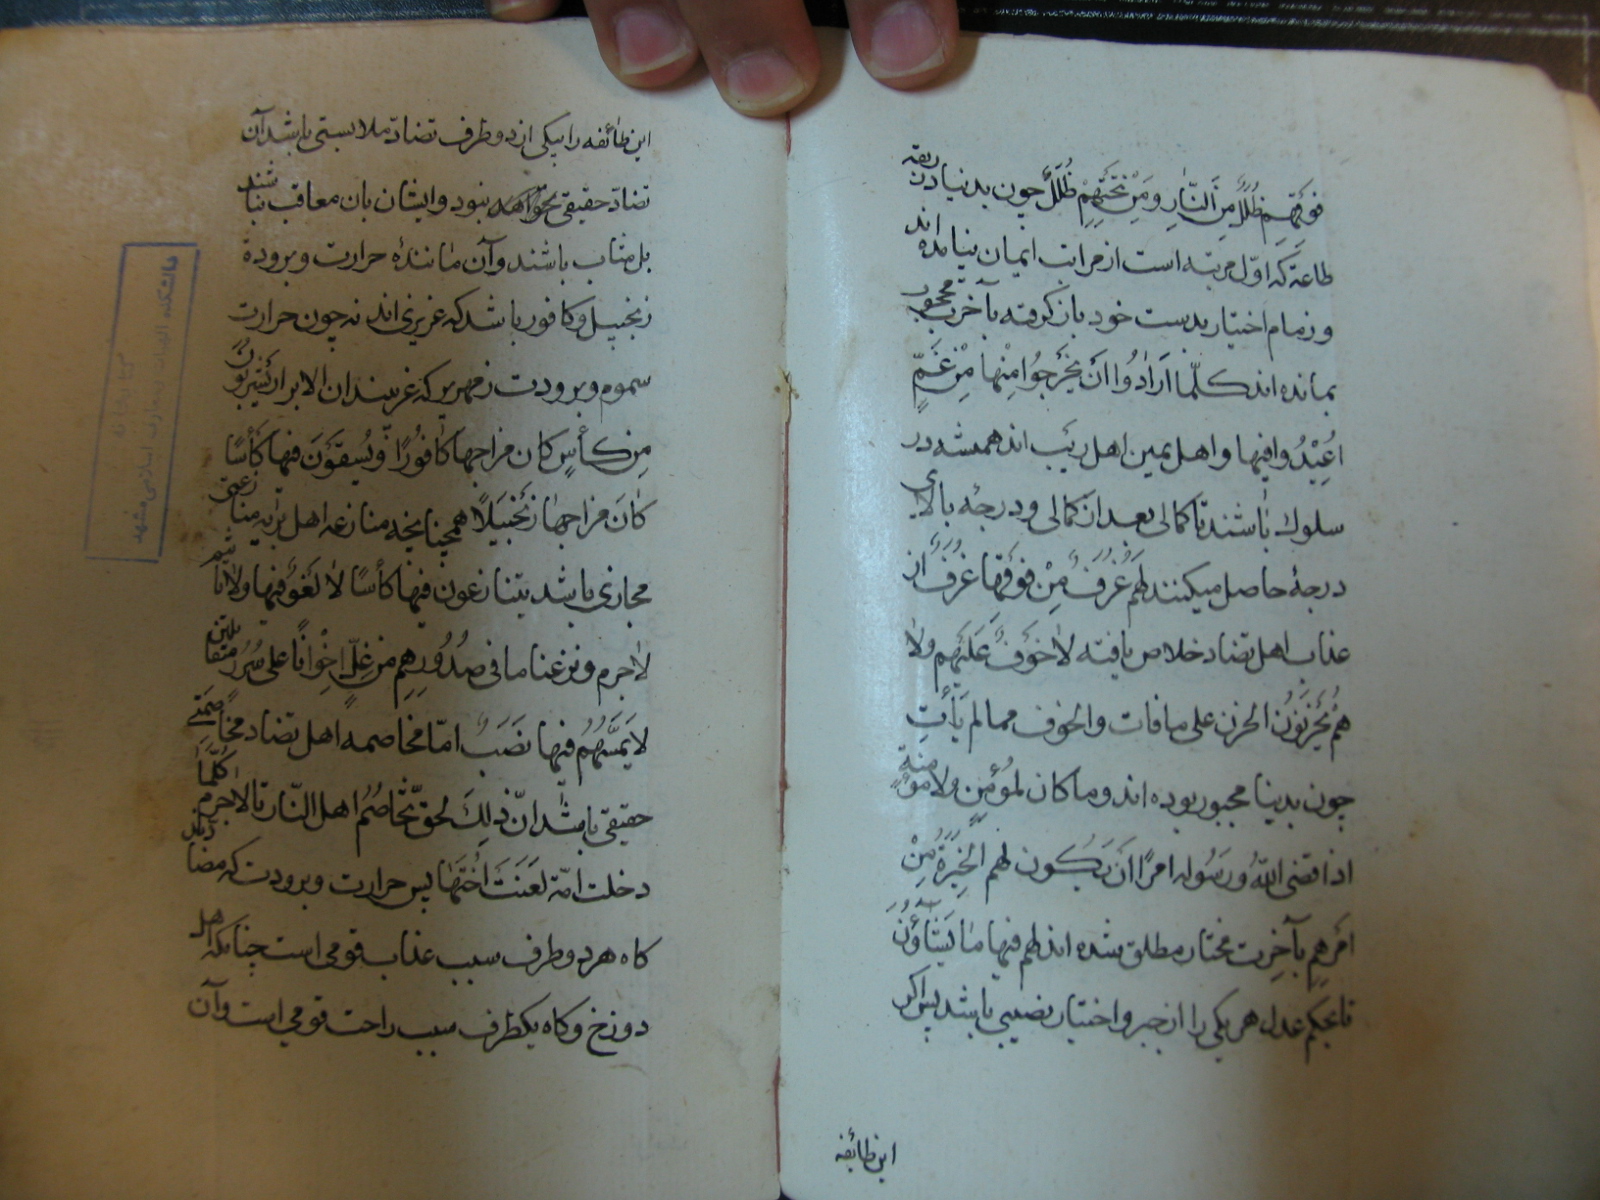 فوقهم ظُلَلٌ مِنَ النّارِ و مِنْ تَحتِهِمْ ظُلَلٌ چون بدنیا در ربقه
طاعة که اوّل مرتبه است از مراتب ایمان نیامده اند
و زمام اختیار بدست خود باز گرفته بآخرت مجبور
بمانده اند کلّما اَرَادُوا اَنْ یَخْرُجُوا مِنْها مِنْ غَمٍّ
اُعِیْدُوا فیها و اهل یمین اهل ریب اند همیشه در
سلوک باشند تا کمالی بعد از کمالی و درجه بالای
درجهٔ حاصل میکنند لهم غُرَفٌ مِنْ فوقها غرفٌ از
عذاب اهل تضاد خلاص یافته لا خوفٌ علیهم ولا
هم یحزنون الحزن علی مافات والخوف ممالم یأتِ
چون بدنیا مجبور بوده اند وما کان لمؤمنٍ ولا مؤمنةٍ
اذا قضی اللّه و رسوله امرًا ان یکون لهم الخیرة من
امرهم بآخرت مختار مطلق شده اند لهم فیها ما یشاؤن
تا بحکم عدل هر یکی را از جبر و اختیار نصیبی باشد پس اگر
این طائفه
این طائفه را بیکی از دو طرف تضاد ملابستی باشد آن
تضاد حقیقی نخواهد بود و ایشان بان معاقب نباشند
بل مثاب باشند و آن مانندهٔ حرارت و برودة
زنجبیل و کافور باشد که غریزی اند نه چون حرارت
سموم و برودت زمهریر که غرببند ان الابرار یشربون
مِن کأسٍ کان مزاجها کافُورًا و یُسقَونَ فیها کأسًا
کانَ مزاجها زنجبیلًا همچنانچه منازعه اهل منازعتی
مجازی باشد یتنازعون فیها کأسًا لا لغو فیها ولا تاثیم
لا جرم و نزعنا ما فی صدورهم من غلٍّ اِخوانًا علی سُرر متقابلین
لا یمسّهُم فیها نصبٌ امّا مخاصمه اهل تضاد مخاصمتی
حقیقی باشد انّ ذلِکَ لحق تخاصُم اهل النّار تا لا جرم کُلّما
دخلت امّة لعنت اُختها پس حرارت و برودت که مضادند
کاه هر دو طرف سبب عذاب قومی است چنانکه اهل
دوزخ و کاه یکطرف سبب راحت قومی است و آن
دانشکده الهیات و معارف اسلامی مشهد
کتابخانه